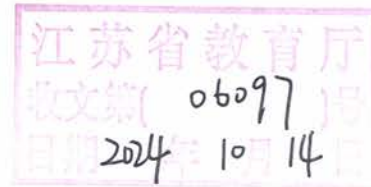 江苏省教育厅
收文第( 06097 )号
日期 2024 年 10 月 14 日